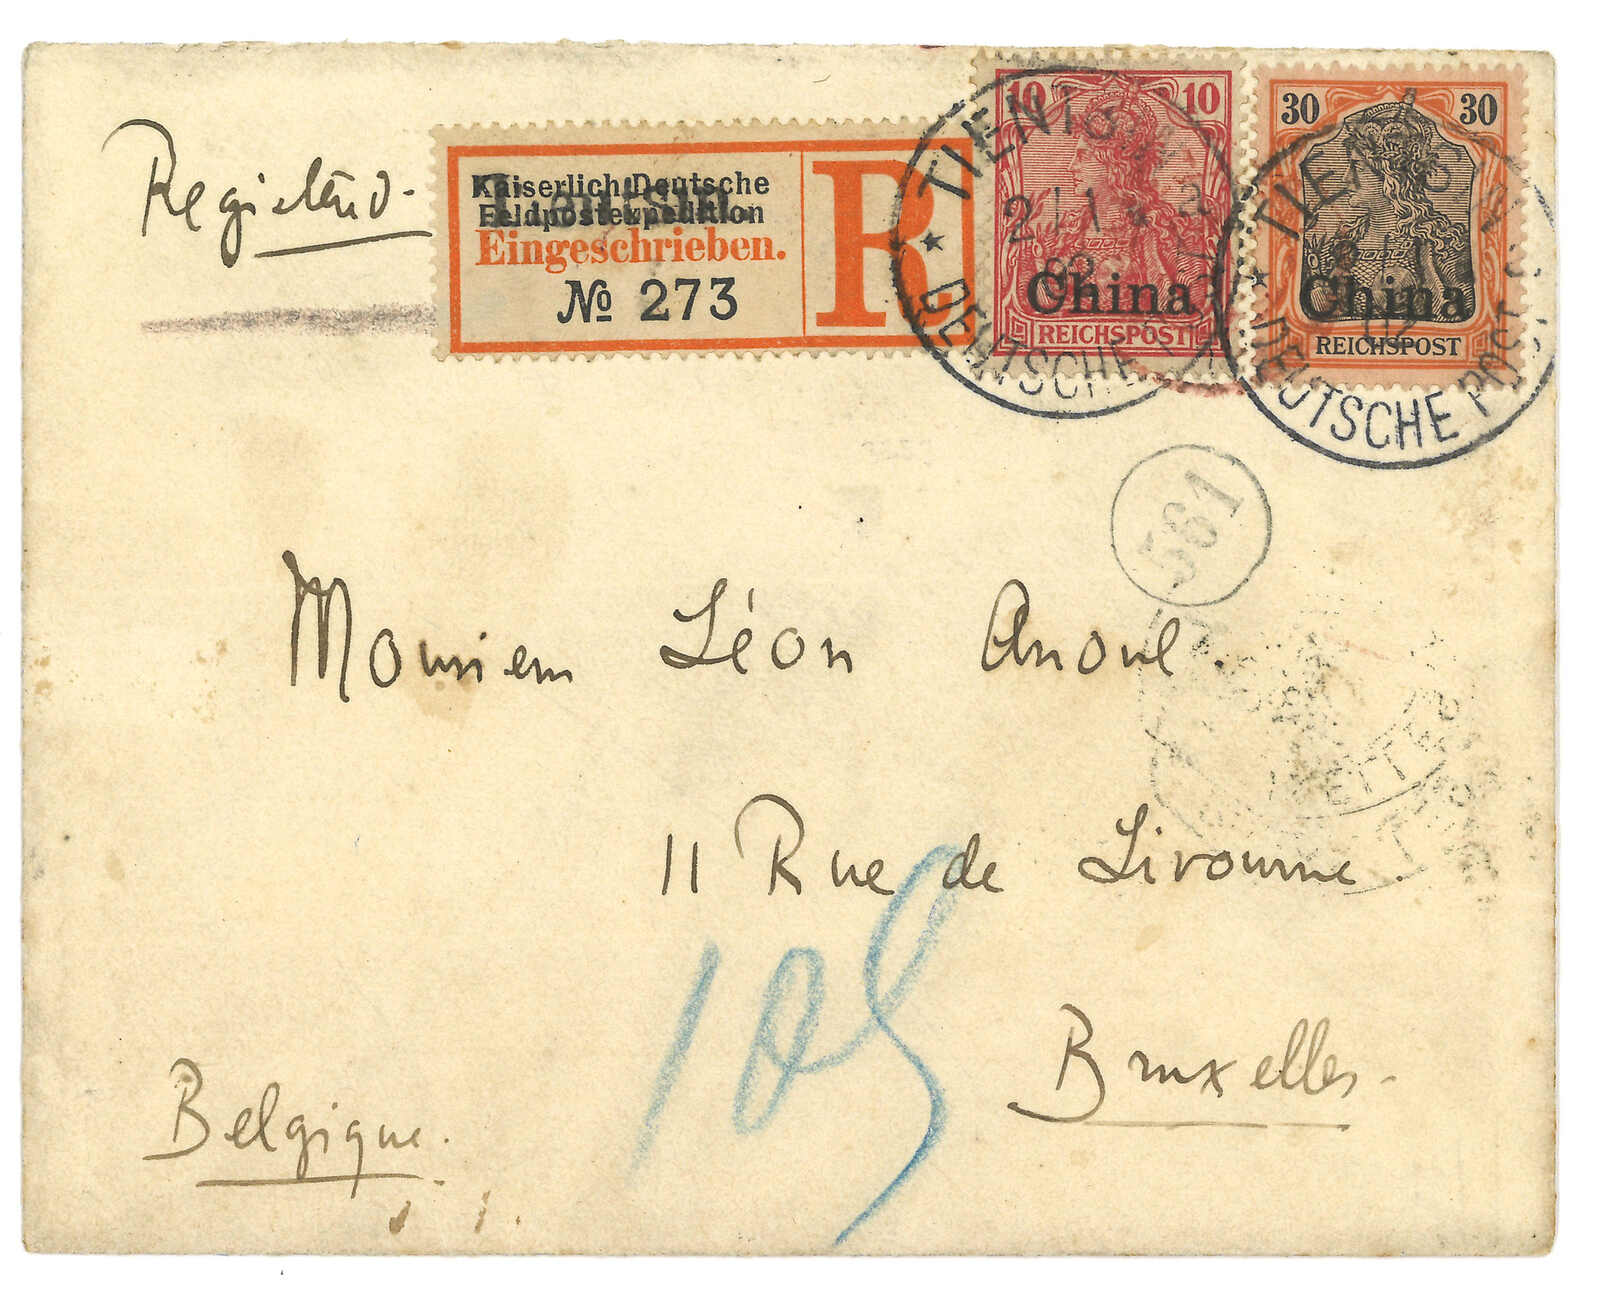 Registered.
Kaiserlich Deutsche
Feldpostexpedition
Tientsin.
Eingeschrieben.
№ 273
R
10 10
China
REICHSPOST
30 30
China
REICHSPOST
TIENTSIN
2/1
02
DEUTSCHE
TIENTSIN
02
DEUTSCHE POST
561
Monsieur Léon Anoul.
11 Rue de Livourne
105
Bruxelles.
Belgique.